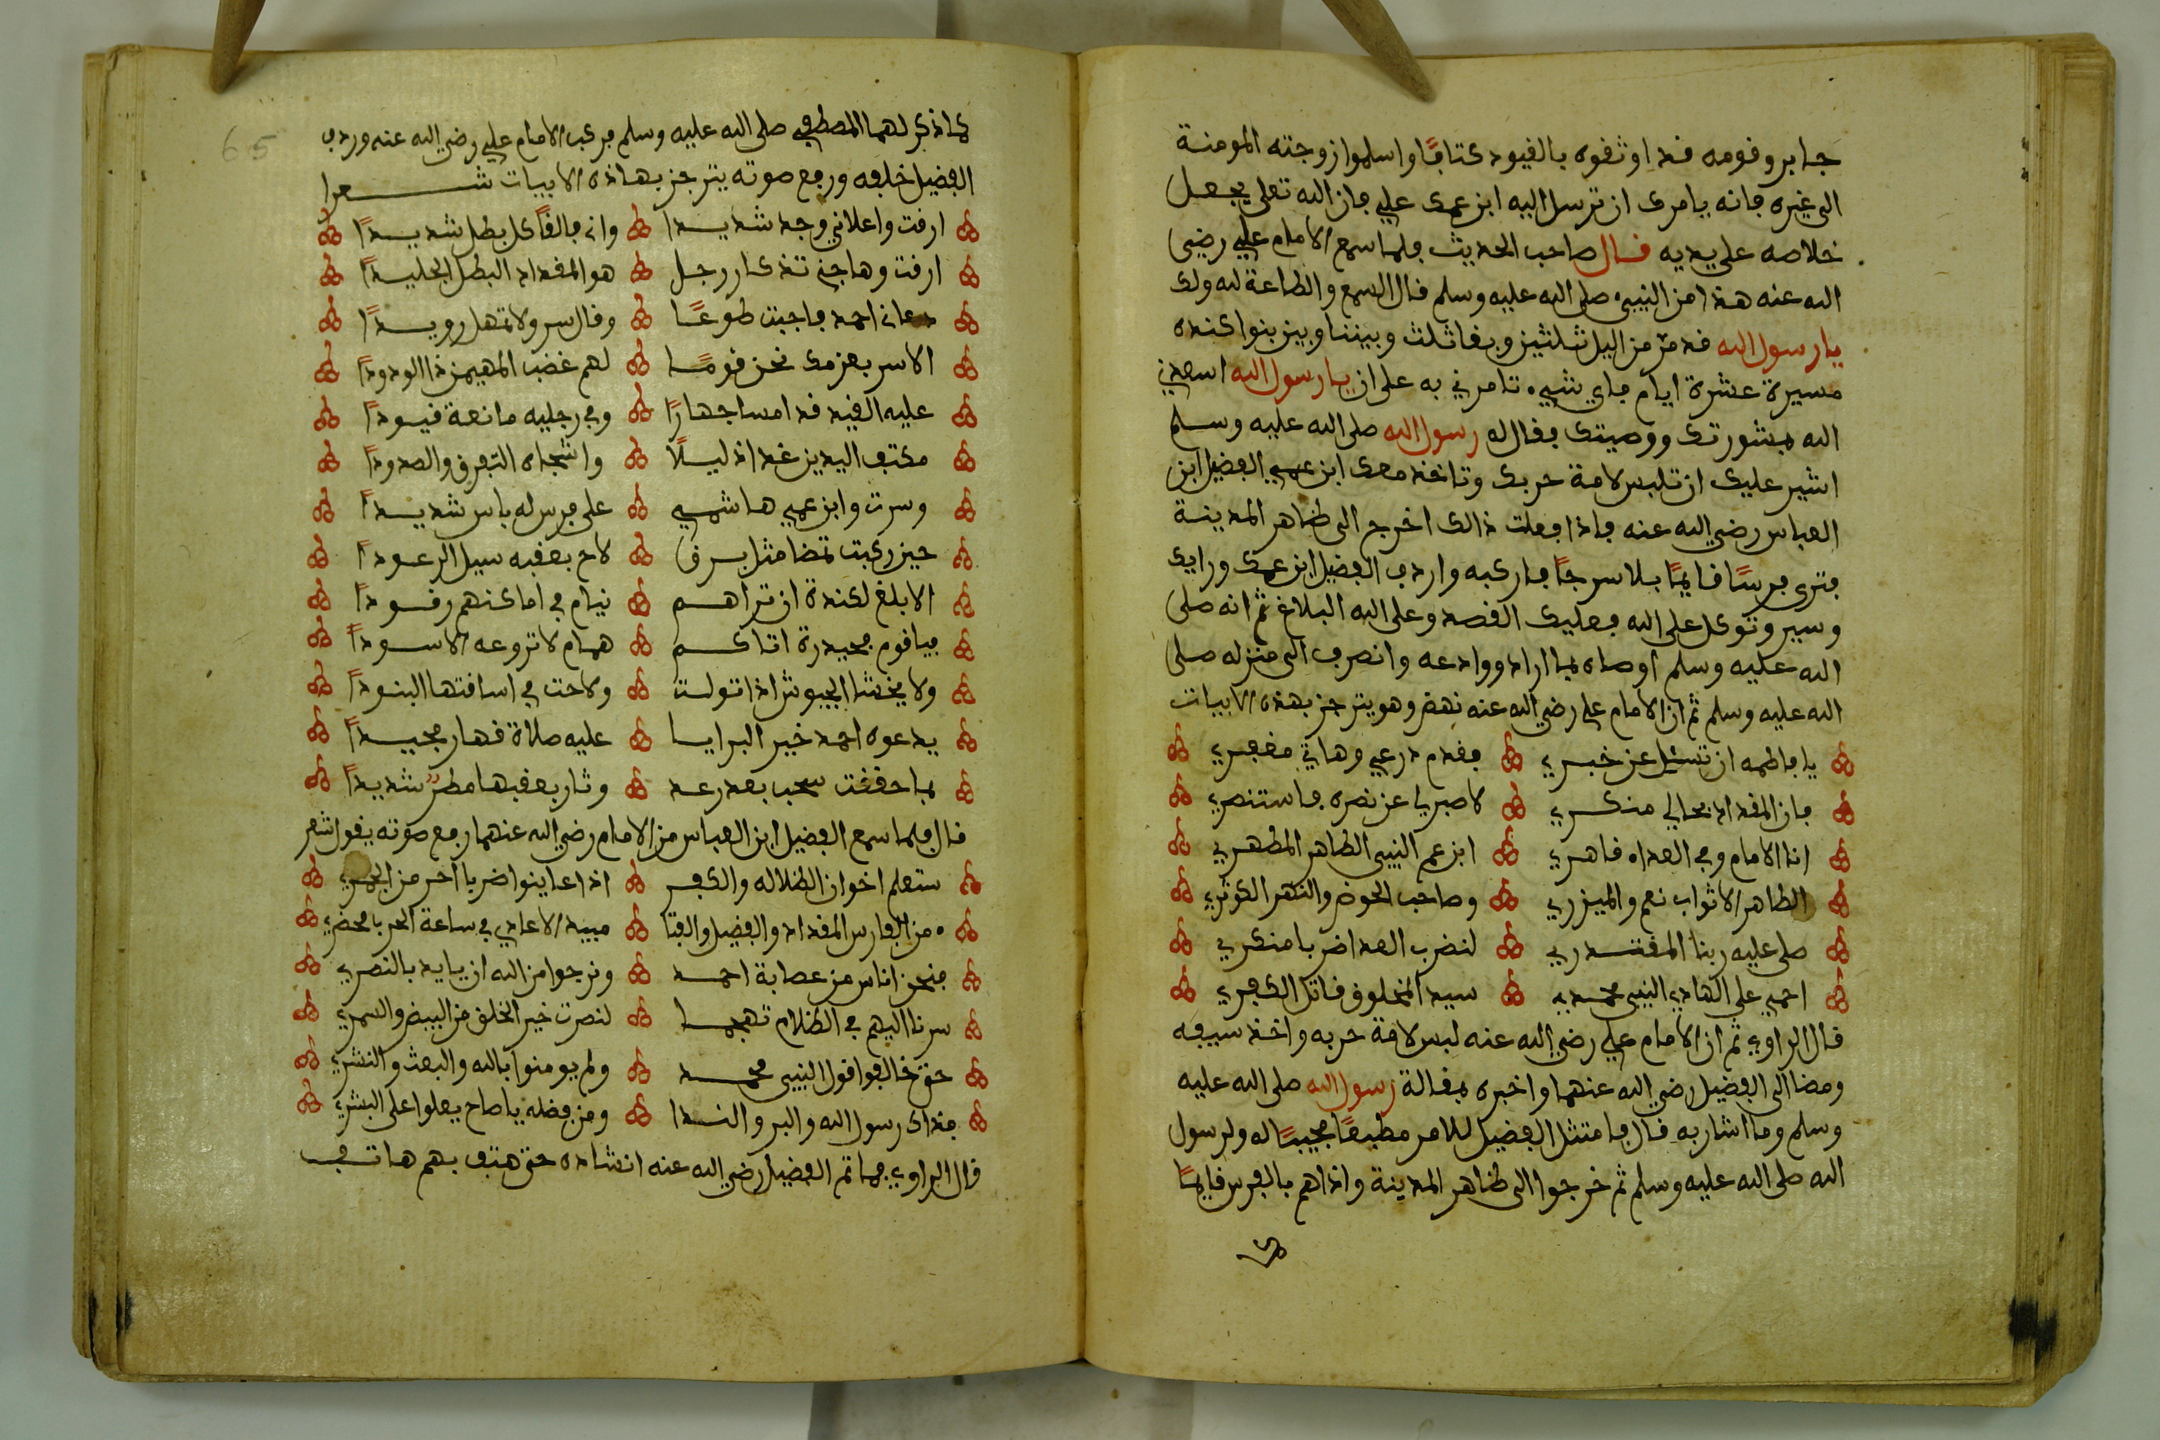 جابر وقومه قد اوثقوه بالقيود كتافًا واسلموا زوجته المومنة
الى غيره فانه يامرك ان ترسل اليه ابن عمك علي فان الله تعلى يجعل
خلاصه على يديه قال صاحب الحديث فلما سمع الامام علي رضي
الله عنه هذا من النبيء صلى الله عليه وسلم قال السمع والطاعة لله ولك
يا رسول الله قد مرّ من اليل ثلثين وبقا ثلث وبيننا وبين بنوا كنده
مسيرة عشرة ايام فاي شيء تامرني به على ان يا رسول الله اسعدني
الله بمشورتك ووصيتك فقال له رسول الله صلى الله عليه وسلم
اشير عليك ان تلبس لامة حربك وتاخذ معك ابن عمي الفضيل ابن
العباس رضي الله عنه فاذا فعلت ذالك اخرج الى ظاهر المدينة
فترى فرسًا قايمًا بلا سرجًا فاركبه واردف الفضيل ابن عمك ورايك
وسير وتوكل على الله فعليك القصد وعلى الله البلاغ ثم انه صلى
الله عليه وسلم اوصاه بما اراد ووادعه وانصرف الى منزله صلى
الله عليه وسلم ثم ان الامام علي رضي الله عنه نهض وهو يترجز بهذه الابيات
يا فاطمه ان تسئل عن خبري فقدم درعي وهاتي مغفري
فان المقداد بحالي منكسري لا صبر لي عن نصره فاستنصري
انا الامام وفي العداه قاهري ابن عم النبيى الطاهر المطهري
الطاهر الاثواب نعم والميزري وصاحب الحوض والنهر الكوثري
صلى عليه ربنا المقتدري لنضرب العدا ضربا منكري
احمي على الهادي النبيى محمد سيد المخلوق قاتل الكفري
قال الراوي ثم ان الامام علي رضي الله عنه لبس لامة حربه واخذ سيفه
ومضا الى الفضيل رضي الله عنهما واخبره بمقالة رسول الله صلى الله عليه
وسلم وما اشار به قال فامتثل الفضيل للامر مطيعًا مجيبًا له ولرسول
الله صلى الله عليه وسلم ثم خرجوا الى ظاهر المدينة واذاهم بالفرس قايمًا
65
كما ذكر لهما المصطفى صلى الله عليه وسلم فركب الامام علي رضي الله عنه وردف
الفضيل خلفه ورفع صوته يترجز بهاذه الابيات شعرا
ارقت واعلاني وجد شديدا واني فالقًا كل بطل شديدًا
ارقت وهاجني تذكار رجل هو المقداد البطل الجليدًا
دعاني احمد فاجبت طوعًا وقال سر ولا تمهل رويدًا
الا سر بعزمك نحن قومًا لهم غضب المهيمن ذا الودودًا
عليه القيد قد امسا جهارًا وفي رجليه مانعة قيودًا
مكتف اليدين غدا ذليلًا واشجاه التفرق والصدودًا
وسرت وابن عمي هاشمي على فرس له باس شديدًا
حين ركبت تمضا مثل برق لاح بعقبه سيل الرعودًا
الا بلغ لكندة ان تراهم نيام في اماكنهم رقودًا
فيا قوم محيدرة اتاكم همام لا تروعه الاسودًا
ولا يخشا الجيوش اذا تولت ولاحت في اسافتها البنودًا
يدعوه احمد خير البرايا عليه صلاة قهار مجيدًا
بما حققت سحب بعد رعد وثار بعقبها مطرٌ شديدًا
قال فلما سمع الفضيل ابن العباس من الامام رضي الله عنهما رفع صوته يقول شعر
ستعلم اخوان الظلاله والكفر اذا عاينوا ضربا احر من الجمري
من الفارس المقداد والفضيل والفتا مبيد الاعادي في ساعة الحرب محضري
فنحن اناس من عصابة احمد ونرجوا من الله ان يايد بالنصري
سرنا اليهم في الظلام تهجما لنصرت خير الخلق من البيض والسمري
حق خالفوا قول النبيى محمد ولم يومنوا بالله والبعث والنشري
فذاك رسول الله والبر والندا ومن فضله يا صاح يعلوا على البشري
قال الراوي فما تم الفضيل رضي الله عنه انشاده حتى هتف بهم هاتف